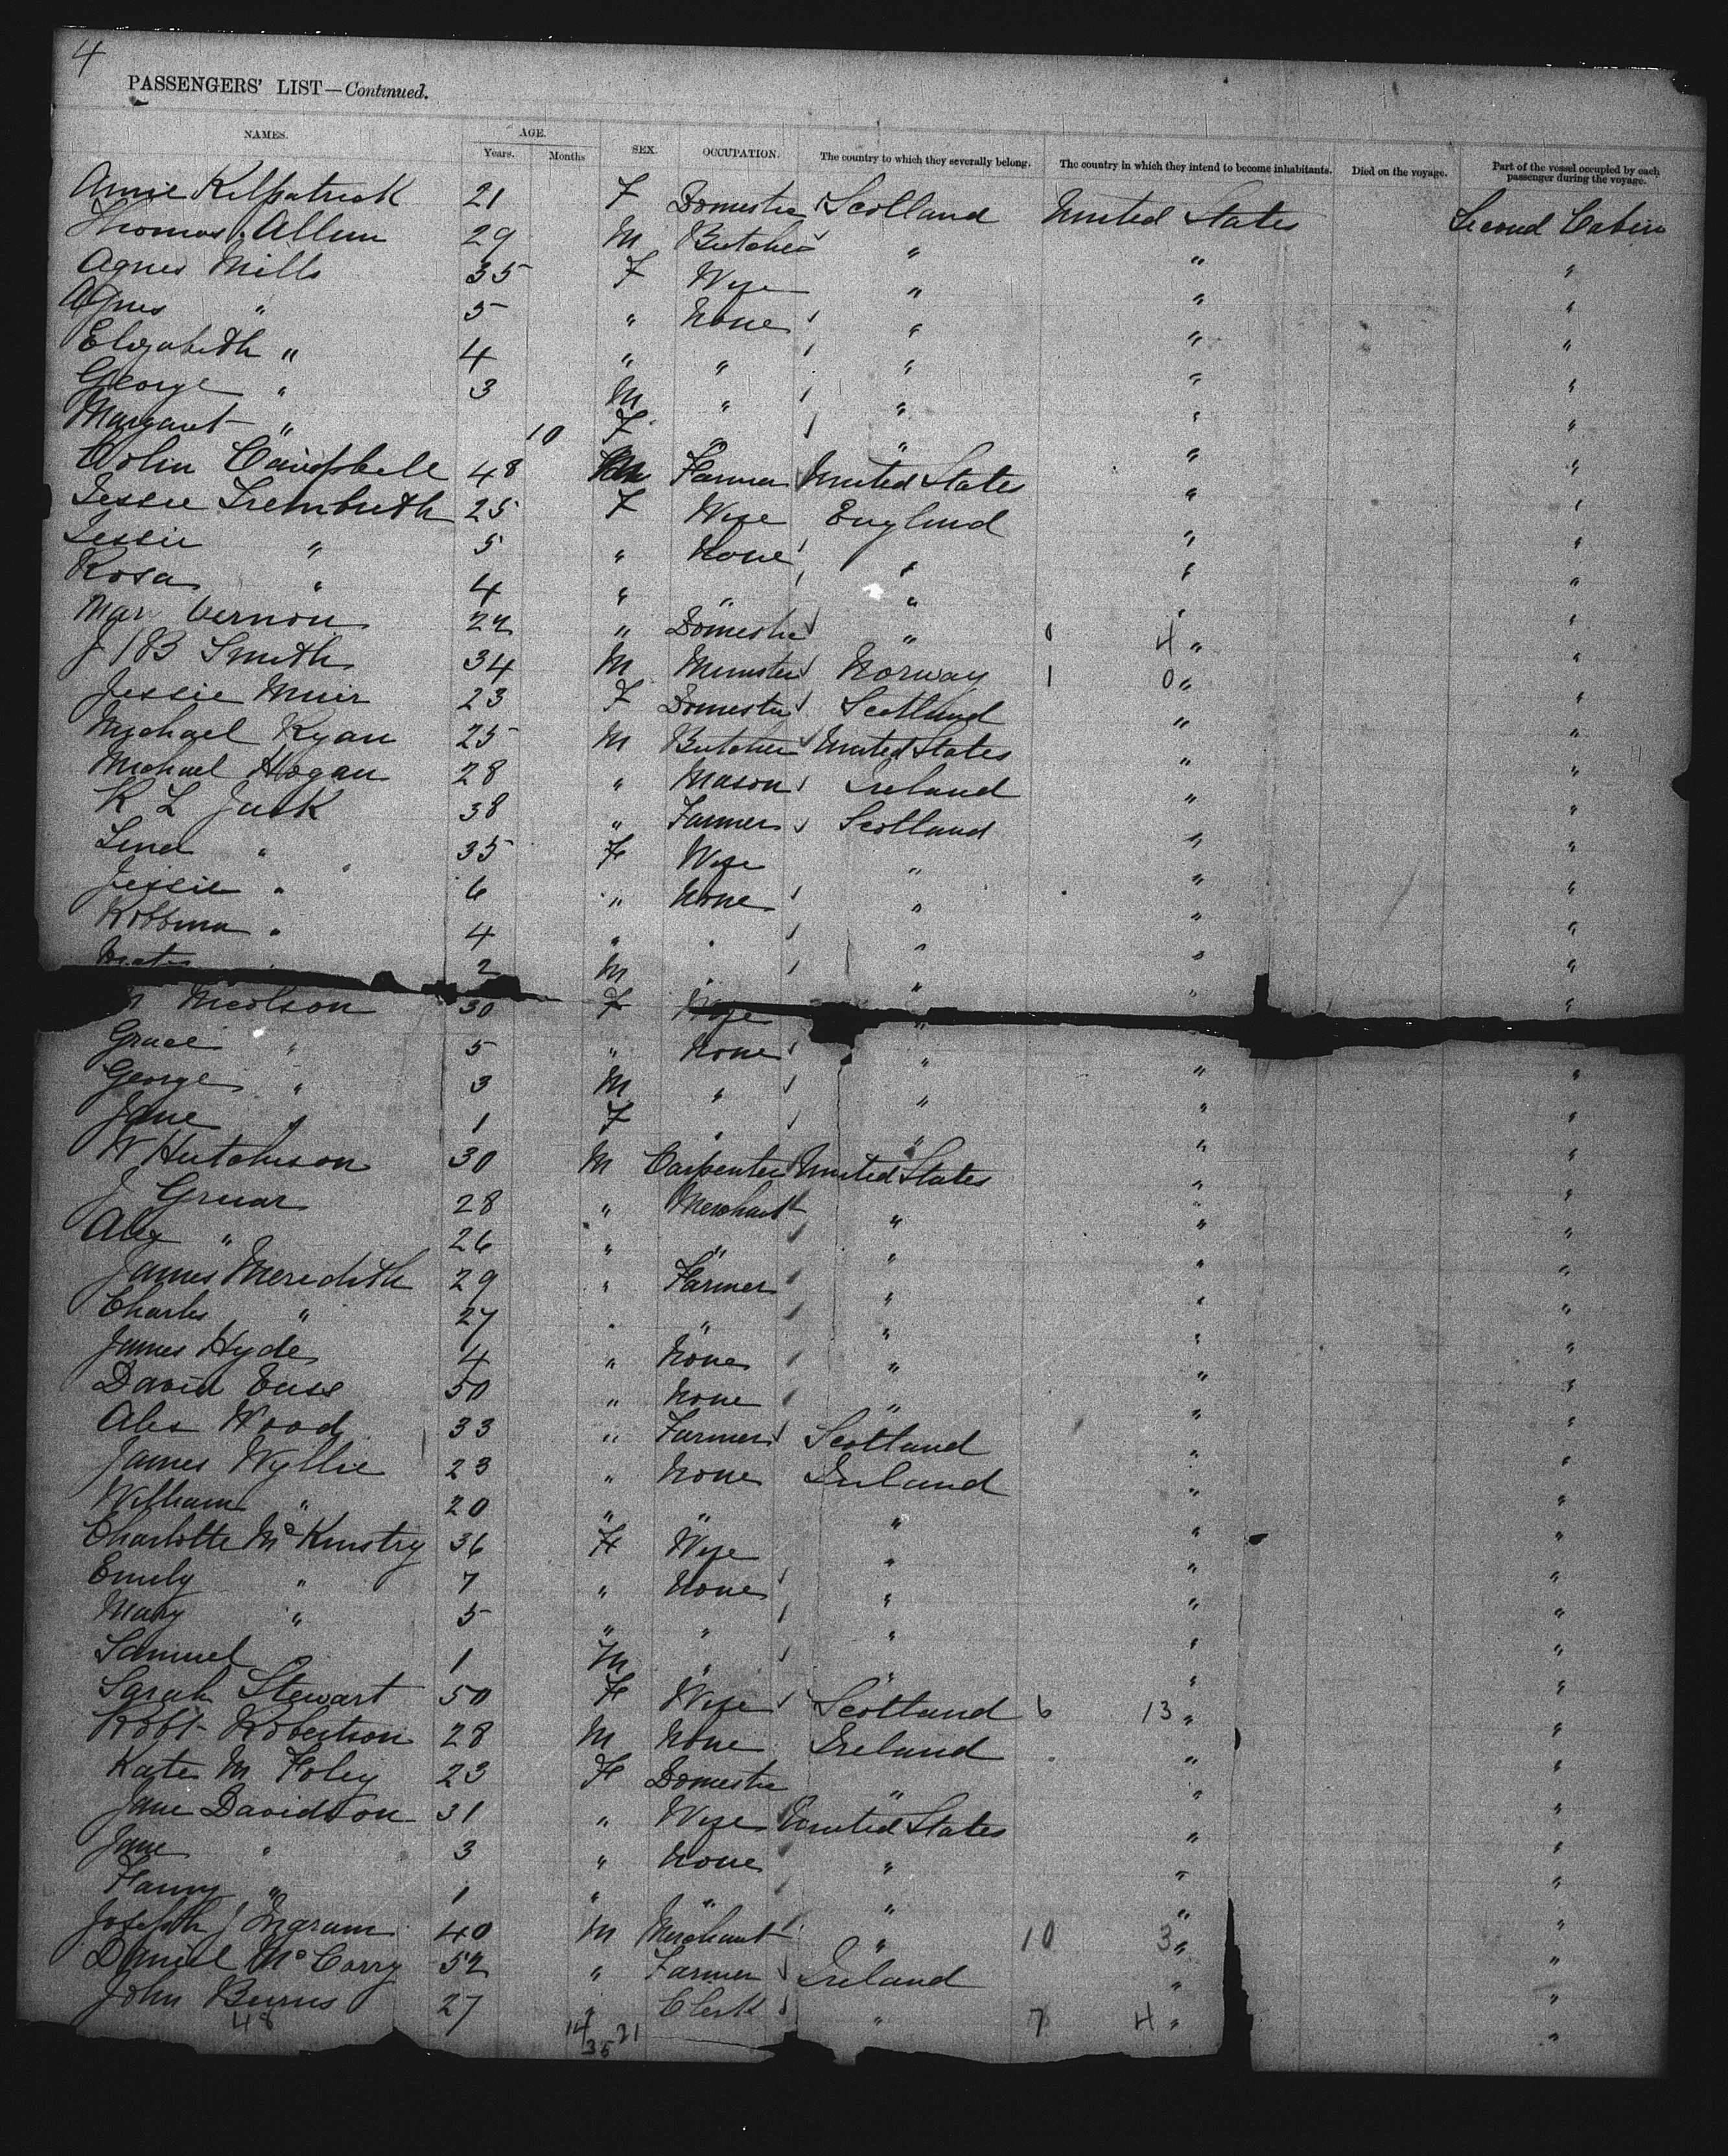 4
PASSENGERS' LIST—Continued.
NAMES. AGE. SEX. OCCUPATION. The country to which they severally belong. The country in which they intend to become inhabitants. Died on the voyage. Part of the vessel occupied by each passenger during the voyage.
Years. Months
Annie Kilpatrick 21 F Domestic Scotland United States Second Cabin
Thomas Allen 29 M Butcher " " "
Agnes Mills 35 F Wife " " "
Agnes " 5 " None " " "
Elizabeth " 4 " " " " "
George " 3 M " " " "
Margaret " 10 F " " " "
Colin Campbell 48 M Farmer United States " "
Jessie Trembeth 25 F Wife England " "
Jessie " 5 " None " " "
Rosa " 4 " " " " "
Mary Vernon 22 " Domestic " 4 " "
J B Smith 34 M Minister Norway 1 0 " "
Jessie Muir 23 F Domestic Scotland " "
Michael Ryan 25 M Butcher United States " "
Michael Hogan 28 " Mason Ireland " "
R L Jack 38 " Farmer Scotland " "
Lena " 35 F Wife " " "
Jessie " 6 " None " " "
Robbina " 4 " " " " "
2 M " " " "
Nicolson 30 F Wife " "
Grace " 5 " None " " "
George " 3 M " " " "
Jane " 1 F " " " "
W Hutchison 30 M Carpenter United States " "
J Gruar 28 " Merchant " " "
Alex " 26 " " " " "
James Meredith 29 " Farmer " " "
Charles " 27 " " " " "
James Hyde 4 " None " " "
David 50 " None " " "
Alex Wood 33 " Farmer Scotland " "
James Wyllie 23 " None Ireland " "
William " 20 " " " " "
Charlotte McKinstry 36 F Wife " " "
Emily " 7 " None " " "
Mary " 5 " " " " "
Samuel 1 M " " " "
Sarah Stewart 50 F Wife Scotland 6 13 " "
Robt Robertson 28 M None Ireland " "
Kate M Foley 23 F Domestic " " "
Jane Davidson 31 " Wife United States " "
Jane " 3 " None " " "
Fanny " 1 " " " " "
Joseph J Ingram 40 M Merchant " 10 3 " "
Daniel McCorry 52 " Farmer Ireland " "
John Burns 27 " Clerk " 7 4 " "
48 14 21
35